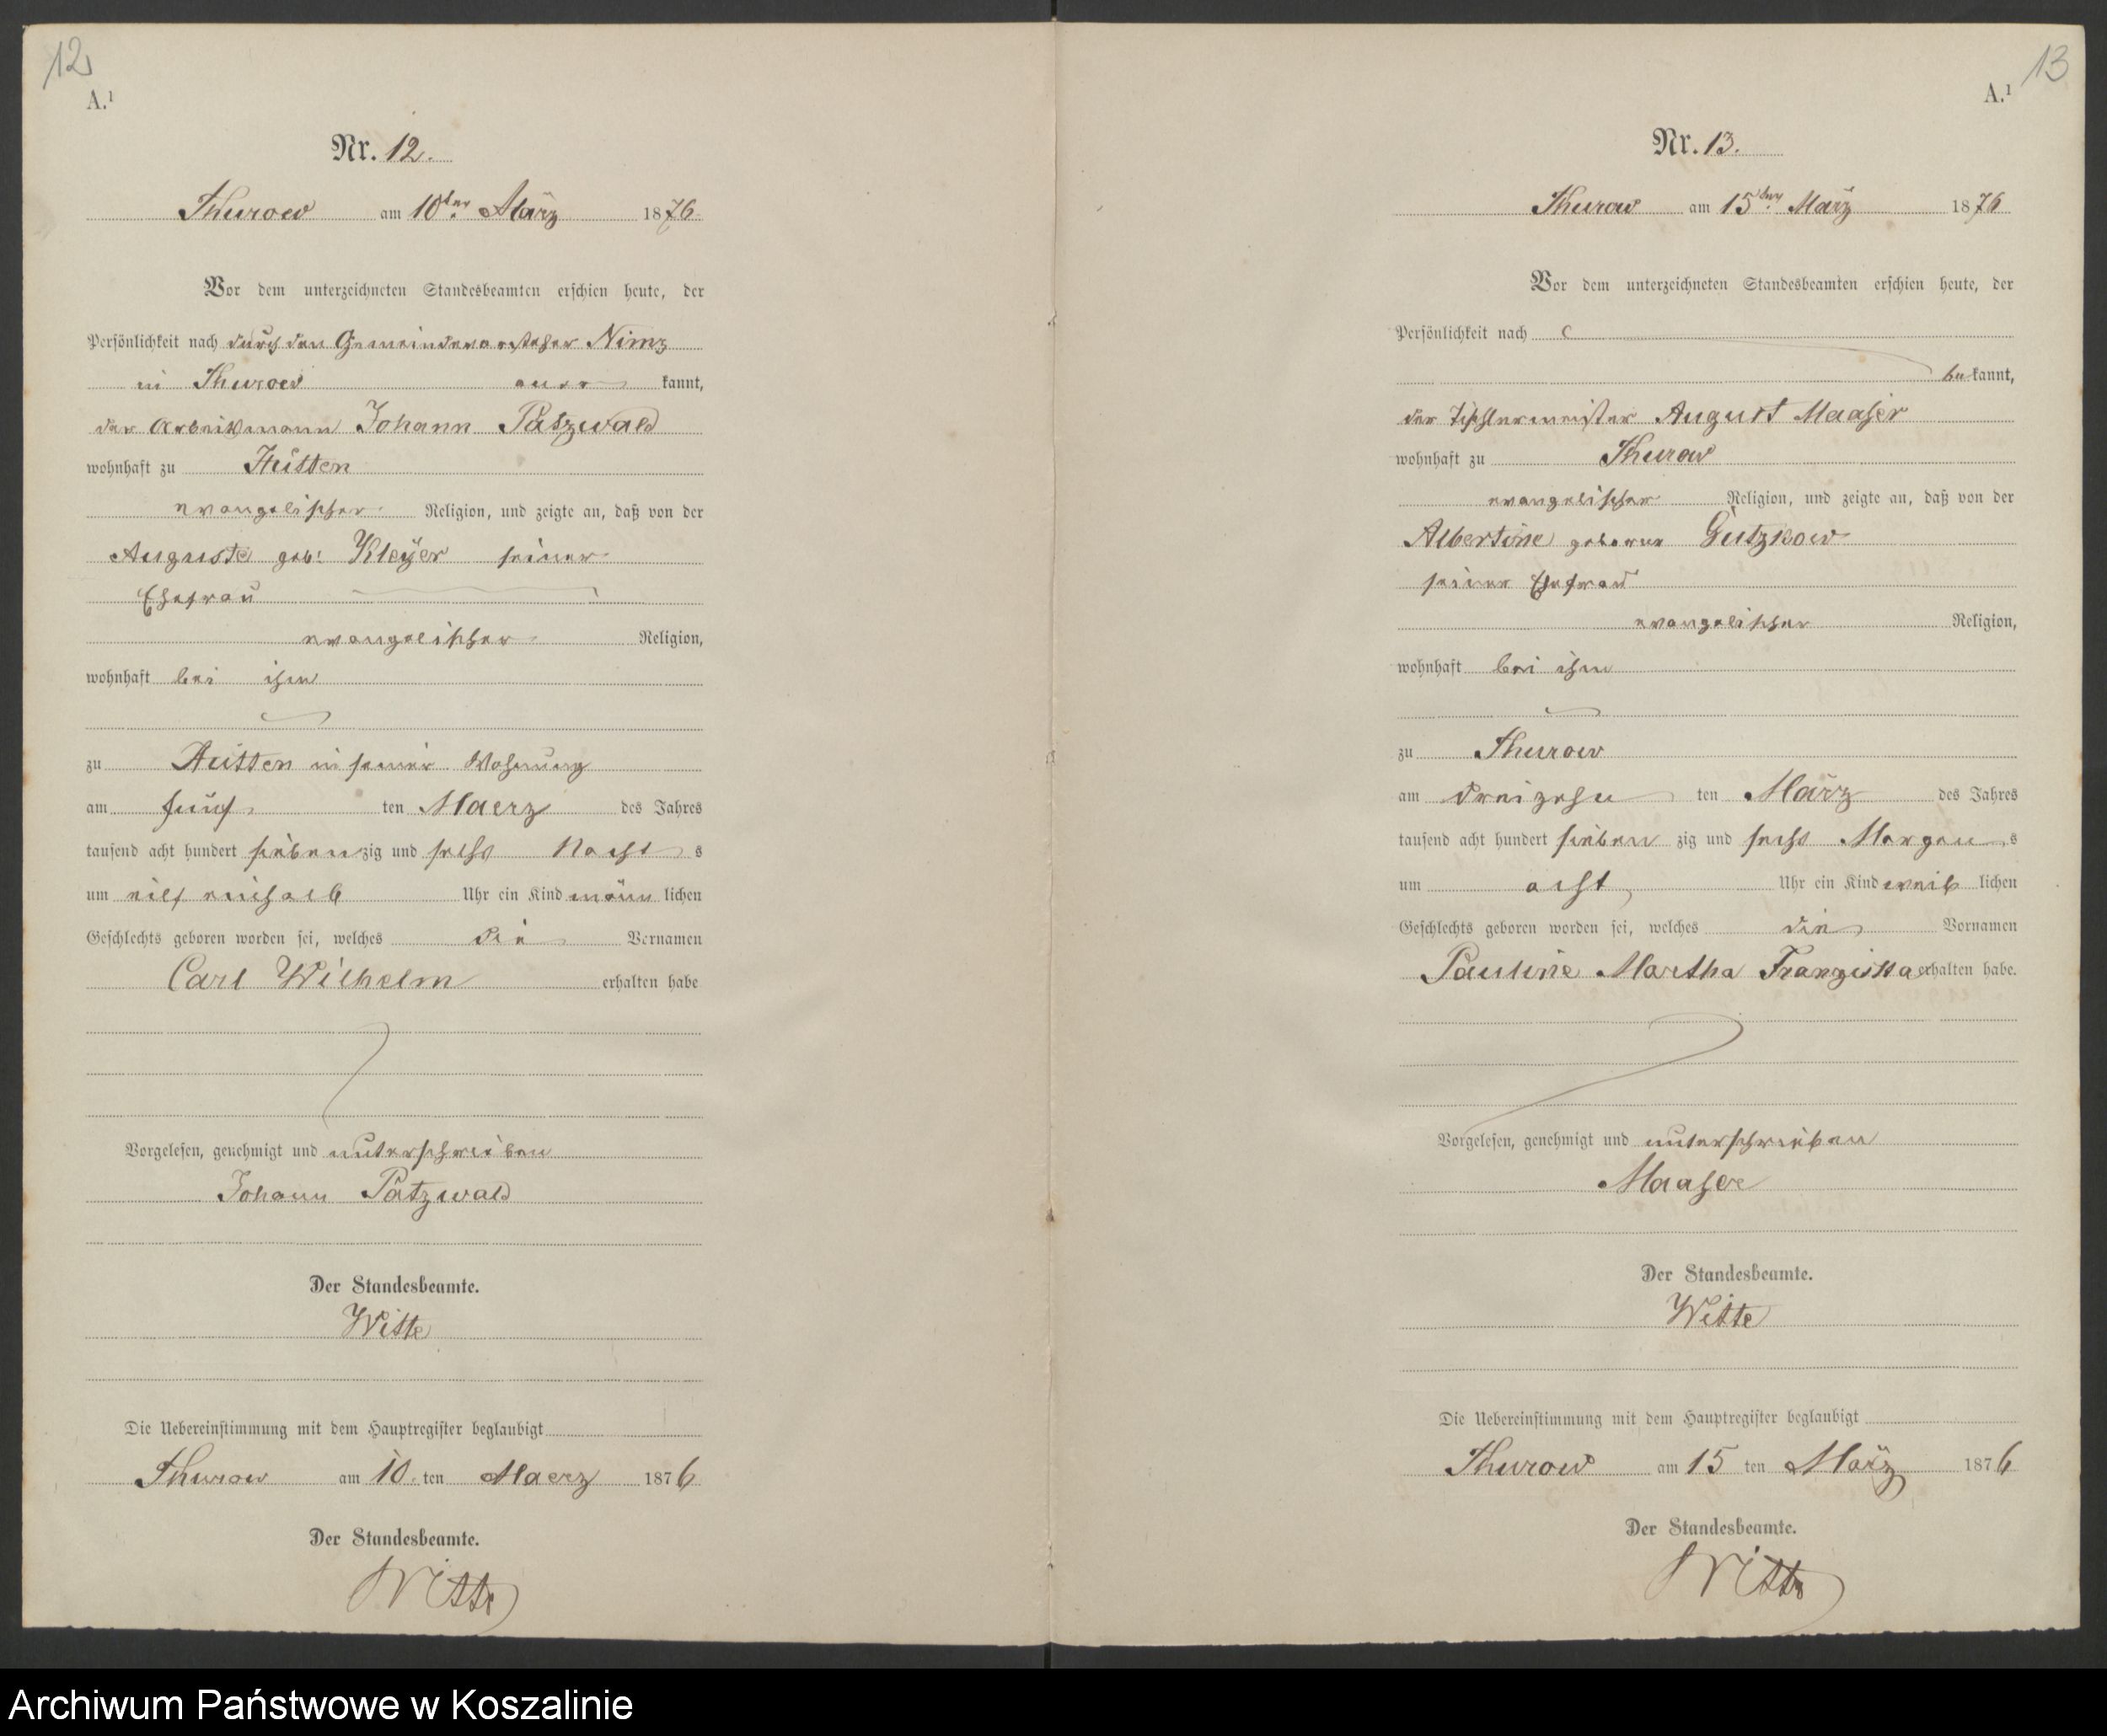 12
A.¹
Nr. 12.
Thurow am 10ten März 1876
Vor dem unterzeichneten Standesbeamten erschien heute, der
Persönlichkeit nach durch den Gemeindevorsteher Nimz
in Thurow aner kannt,
der Arbeitsmann Johann Pätzwald
wohnhaft zu Hütten
evangelischer Religion, und zeigte an, daß von der
Auguste geb: Kleÿer seiner
Ehefrau
evangelischer Religion,
wohnhaft bei ihm
zu Hütten in seiner Wohnung
am fünf ten Maerz des Jahres
tausend acht hundert sieben zig und sechs Nacht s
um eilf einhalb Uhr ein Kind männ lichen
Geschlechts geboren worden sei, welches die Vornamen
Carl Wilhelm erhalten habe
Vorgelesen, genehmigt und unterschrieben
Johann Pätzwald
Der Standesbeamte.
Witte
Die Uebereinstimmung mit dem Hauptregister beglaubigt
Thurow am 10. ten Maerz 1876
Der Standesbeamte.
Witte
13
A.¹
Nr. 13.
Thurow am 15ten März 1876
Vor dem unterzeichneten Standesbeamten erschien heute, der
Persönlichkeit nach
be kannt,
der Tischlermeister August Maaser
wohnhaft zu Thurow
evangelischer Religion, und zeigte an, daß von der
Albertine geborne Gützkow
seiner Ehefrau
evangelischer Religion,
wohnhaft bei ihm
zu Thurow
am dreizehn ten März des Jahres
tausend acht hundert sieben zig und sechs Morgen s
um acht Uhr ein Kind weib lichen
Geschlechts geboren worden sei, welches die Vornamen
Pauline Martha Franziska erhalten habe.
Vorgelesen, genehmigt und unterschrieben
Maaser
Der Standesbeamte.
Witte
Die Uebereinstimmung mit dem Hauptregister beglaubigt
Thurow am 15 ten März 1876
Der Standesbeamte.
Witte
Archiwum Państwowe w Koszalinie